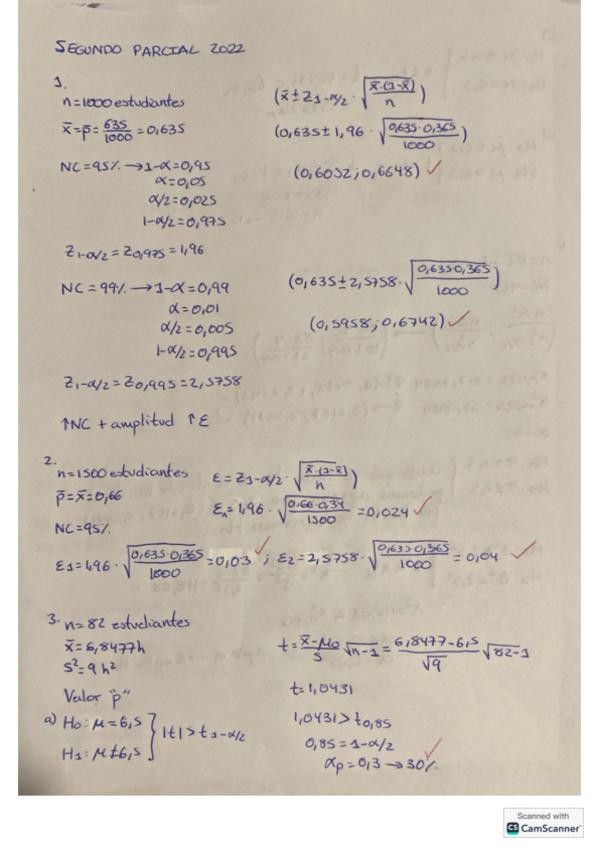 SEGUNDO PARCIAL 2022
1.
n=1000 estudiantes
x̄=p̄=635/1000=0,635
NC=95% →1-α=0,95
α=0,05
α/2=0,025
1-α/2=0,975
Z1-α/2=Z0,975=1,96
(x̄±Z1-α/2·√(x̄·(1-x̄)/n))
(0,635±1,96·√(0,635·0,365/1000))
(0,6052;0,6648) ✓
NC=99% →1-α=0,99
α=0,01
α/2=0,005
1-α/2=0,995
Z1-α/2=Z0,995=2,5758
(0,635±2,5758·√(0,635·0,365/1000))
(0,5958;0,6742) ✓
↑NC + amplitud ↑ε
2.
n=1500 estudiantes
p̄=x̄=0,66
NC=95%
ε=Z1-α/2·√(x̄·(1-x̄)/n))
εn=1,96·√(0,66·0,34/1500)=0,024 ✓
ε1=1,96·√(0,635·0,365/1000)=0,03 ✓; ε2=2,5758·√(0,635·0,365/1000)=0,04 ✓
3. n=82 estudiantes
x̄=6,8477h
s²=9h²
Valor "p"
a) H0:μ=6,5 } |t|>t1-α/2
H1:μ≠6,5
t=(x̄-μ0)/s √n-1=(6,8477-6,5)/√9 √82-1
t=1,0431
1,0431>t0,85
0,85=1-α/2 ✓
αp=0,3→30%
Scanned with
CS CamScanner